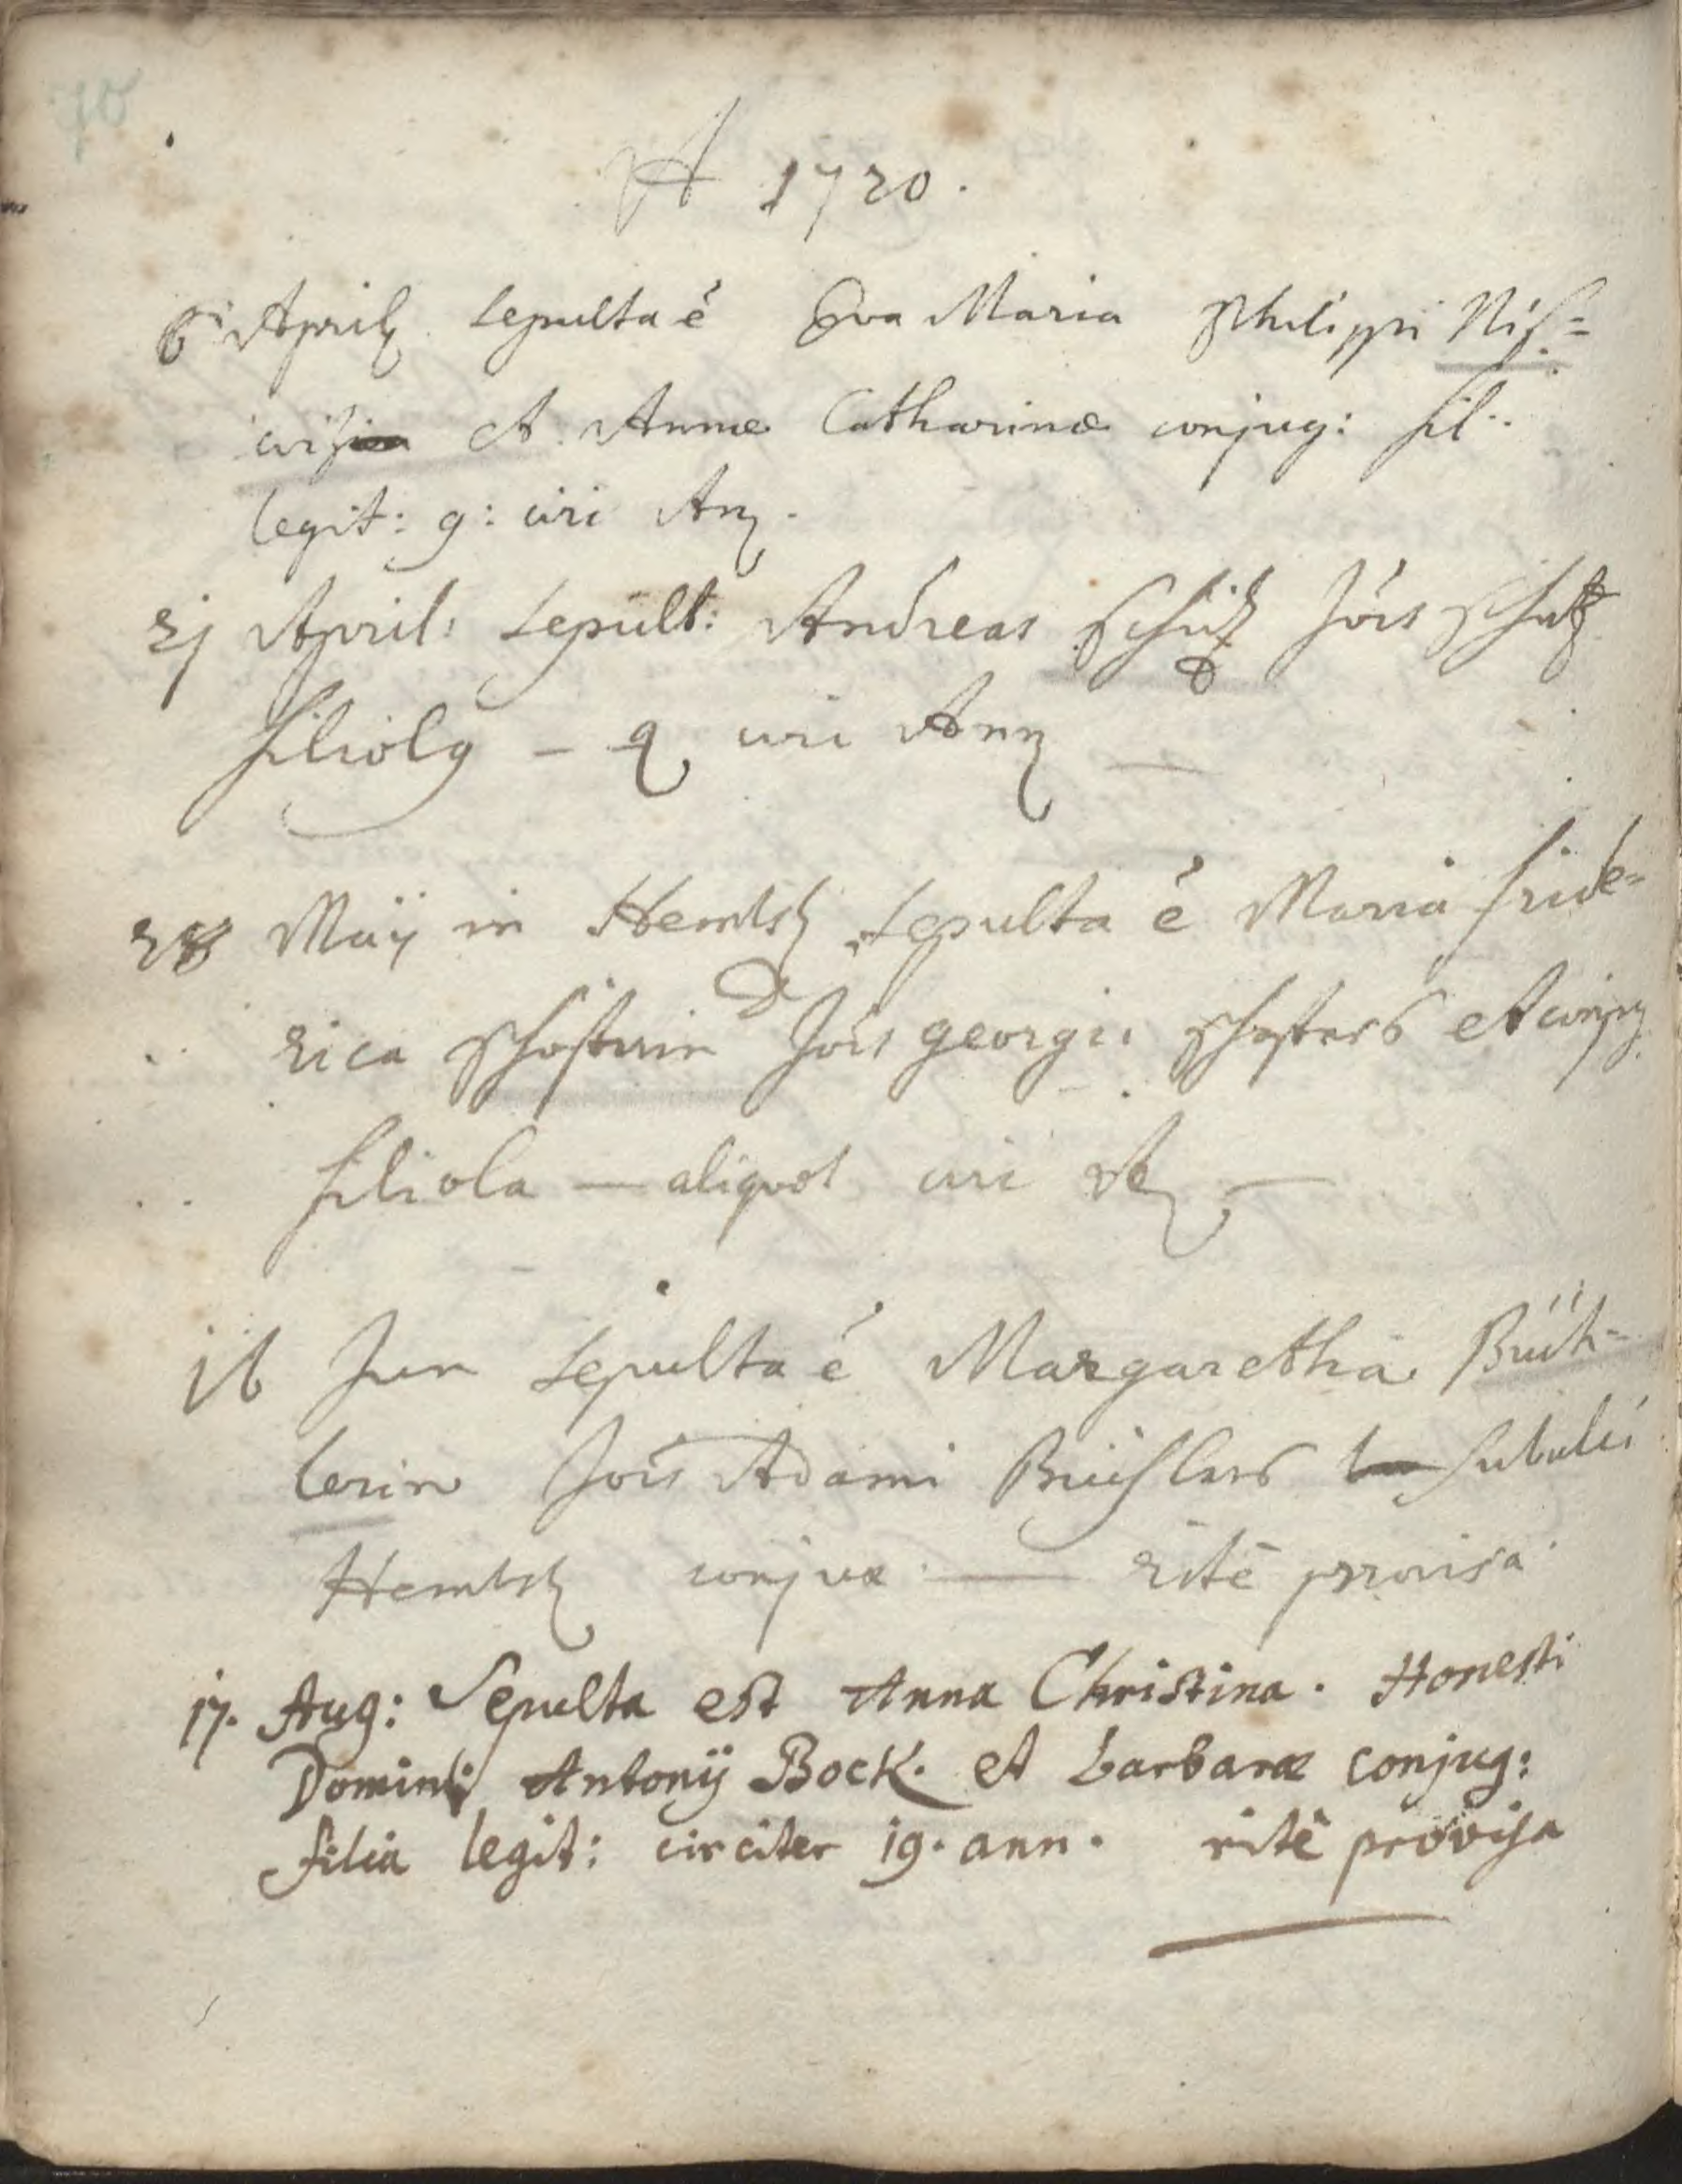 70
A 1720.
6 Aprilis sepulta ē Eva Maria Philippi Niß=
et Annæ Catharinæ conjug: fil:
legit: 9: circ Ann.
21 April: Sepult: Andreas Schütz Jöis Schutz
filiolg — 9 circ Ann —
28 Maÿ in Hembsb sepulta ē Maria fride=
rica Schösterin Jöis georgii Schösters et conjug
filiola — aliquot
16 Jun sepulta ē Margaretha Büch=
lerin Jöis Adami Büchlers subulci
Hembsb conjux — ritè provisa
17. Aug: Sepulta est Anna Christina. Honesti
Domini Antonÿ Bock. et barbaræ conjug:
filia legit: circiter 19. ann. ritè provisa